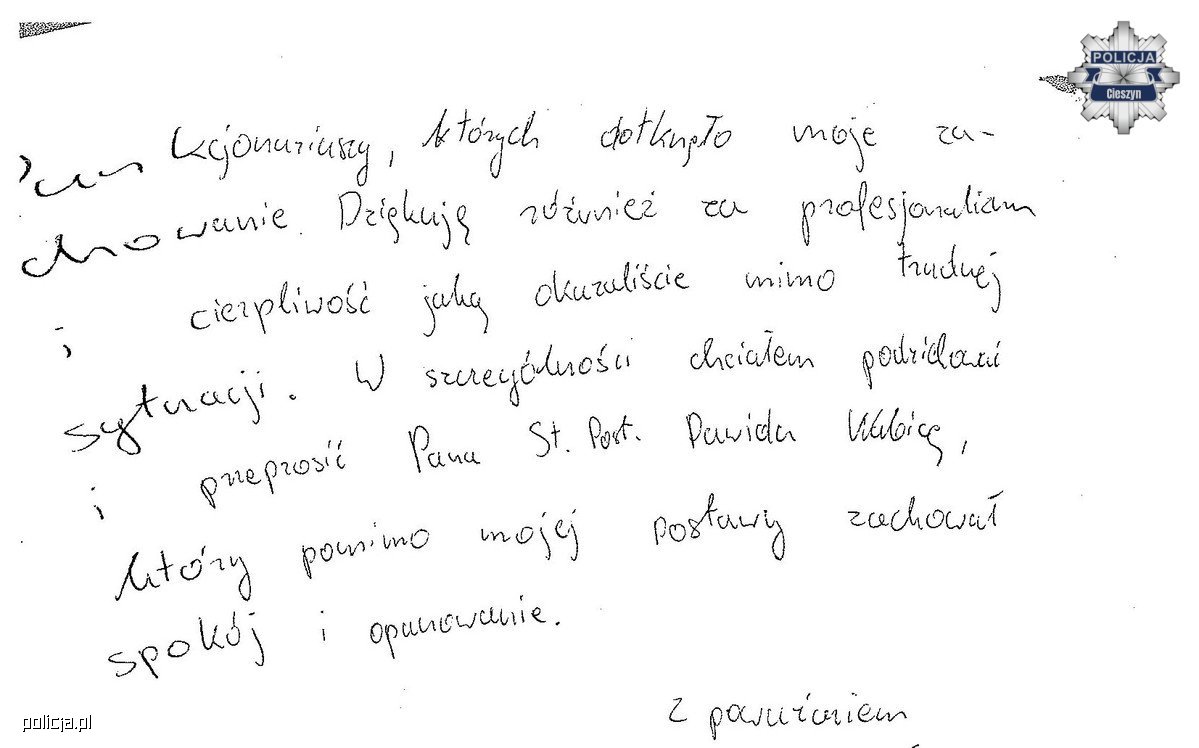 POLICJA
Cieszyn
funkcjonariuszy, których dotknęło moje za-
chowanie. Dziękuję również za profesjonalizm
i cierpliwość jaką okazaliście mimo trudnej
sytuacji. W szczególności chciałem podziękować
i przeprosić Pana St. Post. Dawida
który pomimo mojej postawy zachował
spokój i opanowanie.
z poważaniem
policja.pl